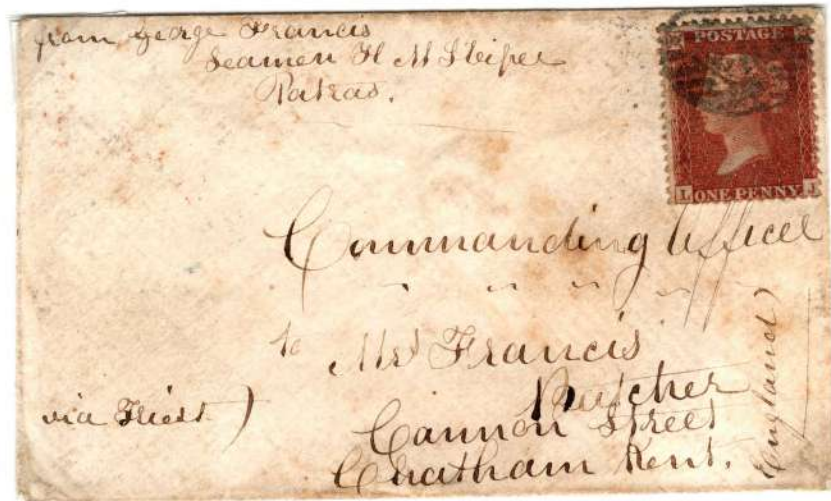 from George Francis
Seamen H M Sleiper
Patras.
POSTAGE
L ONE PENNY J
Commanding Officer
to Mrs Francis
Butcher
Cannon Street
Chatham Kent.
England
via Triest